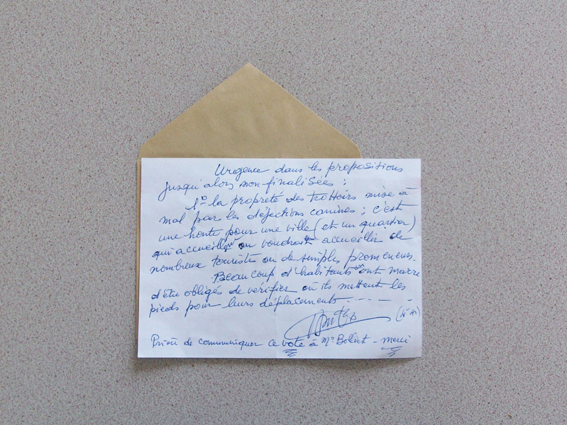 Urgence dans les propositions
jusqu'alors non-finalisées :
1° la propreté des trottoirs mise à
mal par les déjections canines ; c'est
une honte pour une ville (et un quartier)
qui accueille ou voudrait accueillir de
nombreux touristes ou de simples promeneurs.
Beaucoup d'habitants en ont marre
d'être obligés de vérifier où ils mettent les
pieds pour leurs déplacements - - - -
Prière de communiquer ce vote à Mr - merci